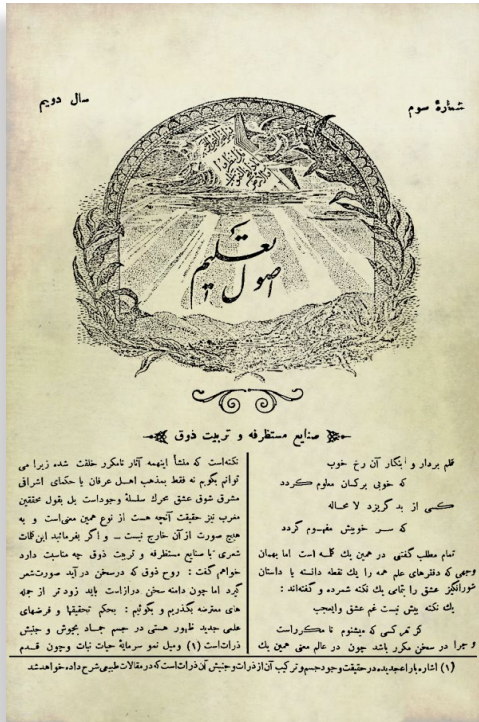 شمارهٔ سوم
سال دویم
اصول تعلیم
صنایع مستظرفه و تربیت ذوق
قلم بردار و اینکار آن رخ خوب
که خوبی برکسان معلوم گردد
کسی از بد گریزد لا محاله
که سر خوبیش مفهوم گردد
تمام مطلب گفتنی در همین یك کلمه است اما بهمان
وجهی که دفترهای علم همه را یك نقطه دانسته یا داستان
شورانگیز عشق را بتمامی یك نکته شمرده و گفته‌اند :
یك نکته بیش نیست غم عشق وایعجب
کز هر کسی که میشنوم نا مکرراست
و چرا در سخن مکرر باشد چون در عالم معنی همین یك
نکته‌است که منشأ اینهمه آثار نامکرر خلقت شده زیرا می
توانم بگویم نه فقط بمذهب اهل عرفان یا حکمای اشراقی
مشرق شوق عشق محرك سلسلهٔ وجوداست بل بقول محققین
مغرب نیز حقیقت آنچه هست از نوع همین معنی‌است و به
هیچ صورت از آن خارج نیست ــ و اگر بفرمائید این کلمات
شعری با صنایع مستظرفه و تربیت ذوق چه مناسبت دارد
خواهم گفت : روح ذوق که درسخن در آید صورت شعر
گیرد اما چون دامنه سخن درازاست باید زود تر از جمله
های معترضه بگذریم و بگوئیم : بحکم تحقیقها و فرضهای
علمی جدید ظهور هستی در جسم جماد بجوش و جنبش
ذرات‌است (۱) ومیل نمو سرمایهٔ حیات نبات وچون قدم
(۱) اشاره بآراء جدیده در حقیقت وجود جسم و ترکیب آن از ذرات و جنبش آن ذرات است که در مقالات طبیعی شرح داده خواهد شد